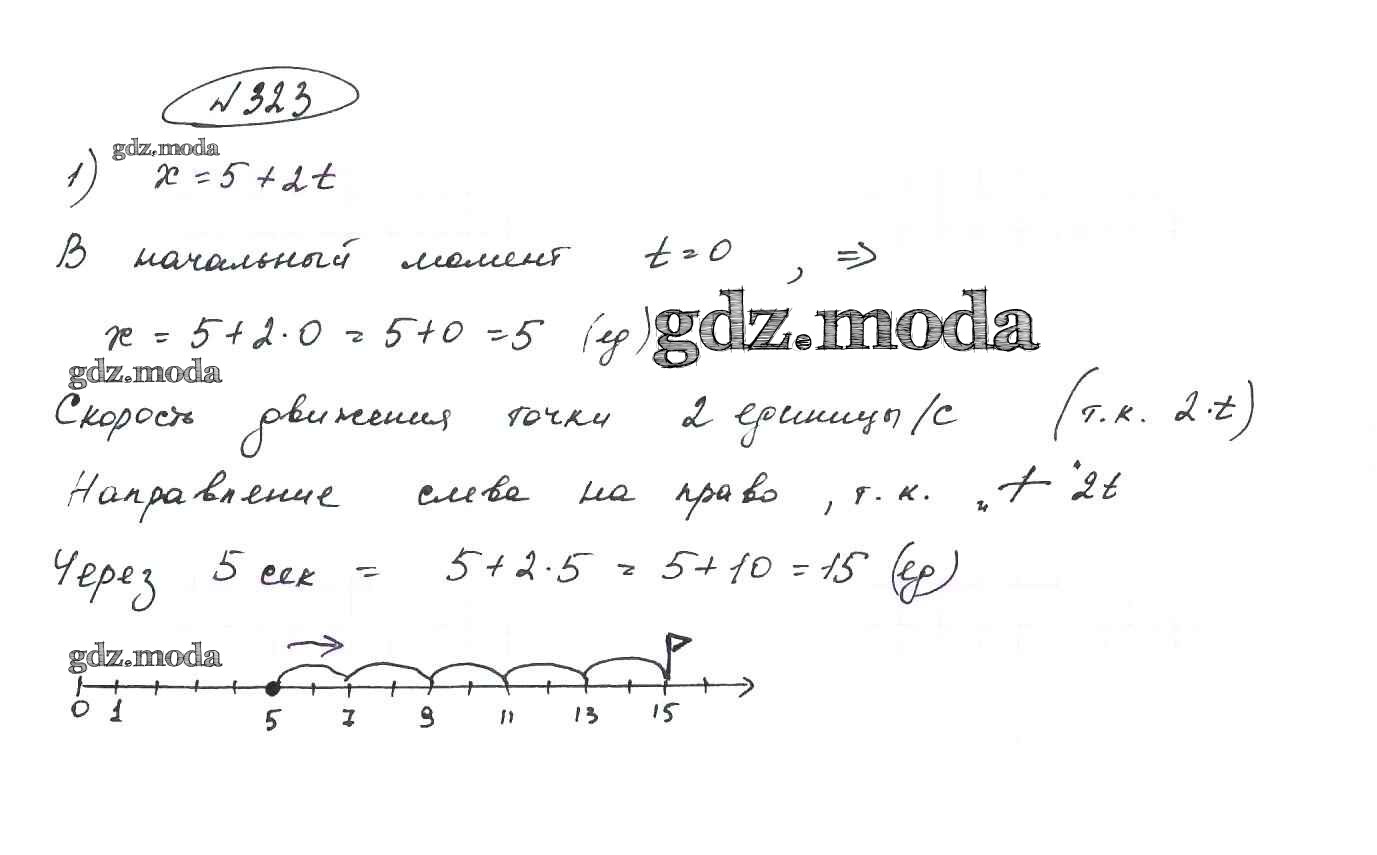 №323
gdz.moda
1) x = 5 + 2t
В начальный момент t = 0 , ⇒
x = 5 + 2·0 = 5 + 0 = 5 (ед)
gdz.moda
gdz.moda
Скорость движения точки 2 единицы/с (т.к. 2·t)
Направление слева на право, т.к. „+" 2t
Через 5 сек = 5 + 2·5 = 5 + 10 = 15 (ед)
gdz.moda
0 1 5 7 9 11 13 15